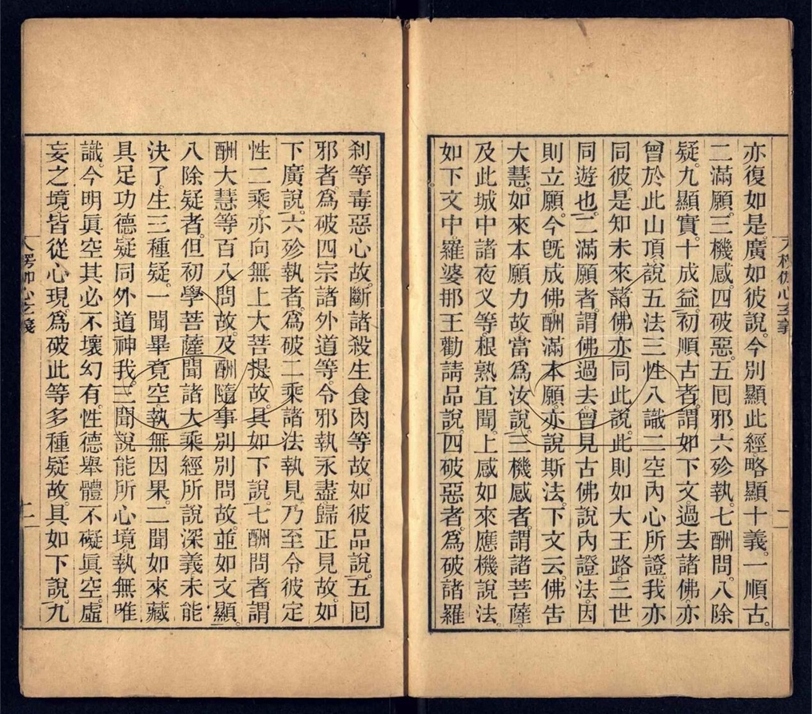 亦復如是廣如彼說。今別顯此經略顯十義。一順古。
二滿願。三機感。四破惡。五囘邪。六殄執。七酬問。八除
疑。九顯實。十成益。初順古者。謂如下文過去諸佛。亦
曾於此山頂說五法三性八識二空內心所證。我亦
同彼。是知未來諸佛亦同此說。此則如大王路。三世
同遊也。二滿願者。謂佛過去曾見古佛說內證法。因
則立願。今旣成佛。酬滿本願。亦說斯法。下文云。佛告
大慧。如來本願力故。當爲汝說。三機感者。謂諸菩薩
及此城中諸夜叉等根熟宜聞。上感如來應機說法。
如下文中羅婆那王勸請品說。四破惡者。爲破諸羅
刹等毒惡心故。斷諸殺生食肉等故。如彼品說。五囘
邪者。爲破四宗諸外道等。令邪執永盡歸正見故。如
下廣說。六殄執者。爲破二乘諸法執見。乃至令彼定
性二乘亦向無上大菩提故。具如下說。七酬問者。謂
酬大慧等百八問故。及酬隨事別別問故。並如文顯。
八除疑者。但初學菩薩聞諸大乘經所說深義。未能
決了。生三種疑。一聞畢竟空。執無因果。二聞如來藏
具足功德。疑同外道神我。三聞說能所心境。執無唯
識。今明眞空其必不壞幻有。性德舉體不礙眞空。虛
妄之境皆從心現。爲破此等多種疑故。具如下說。九
入楞伽心玄義
二